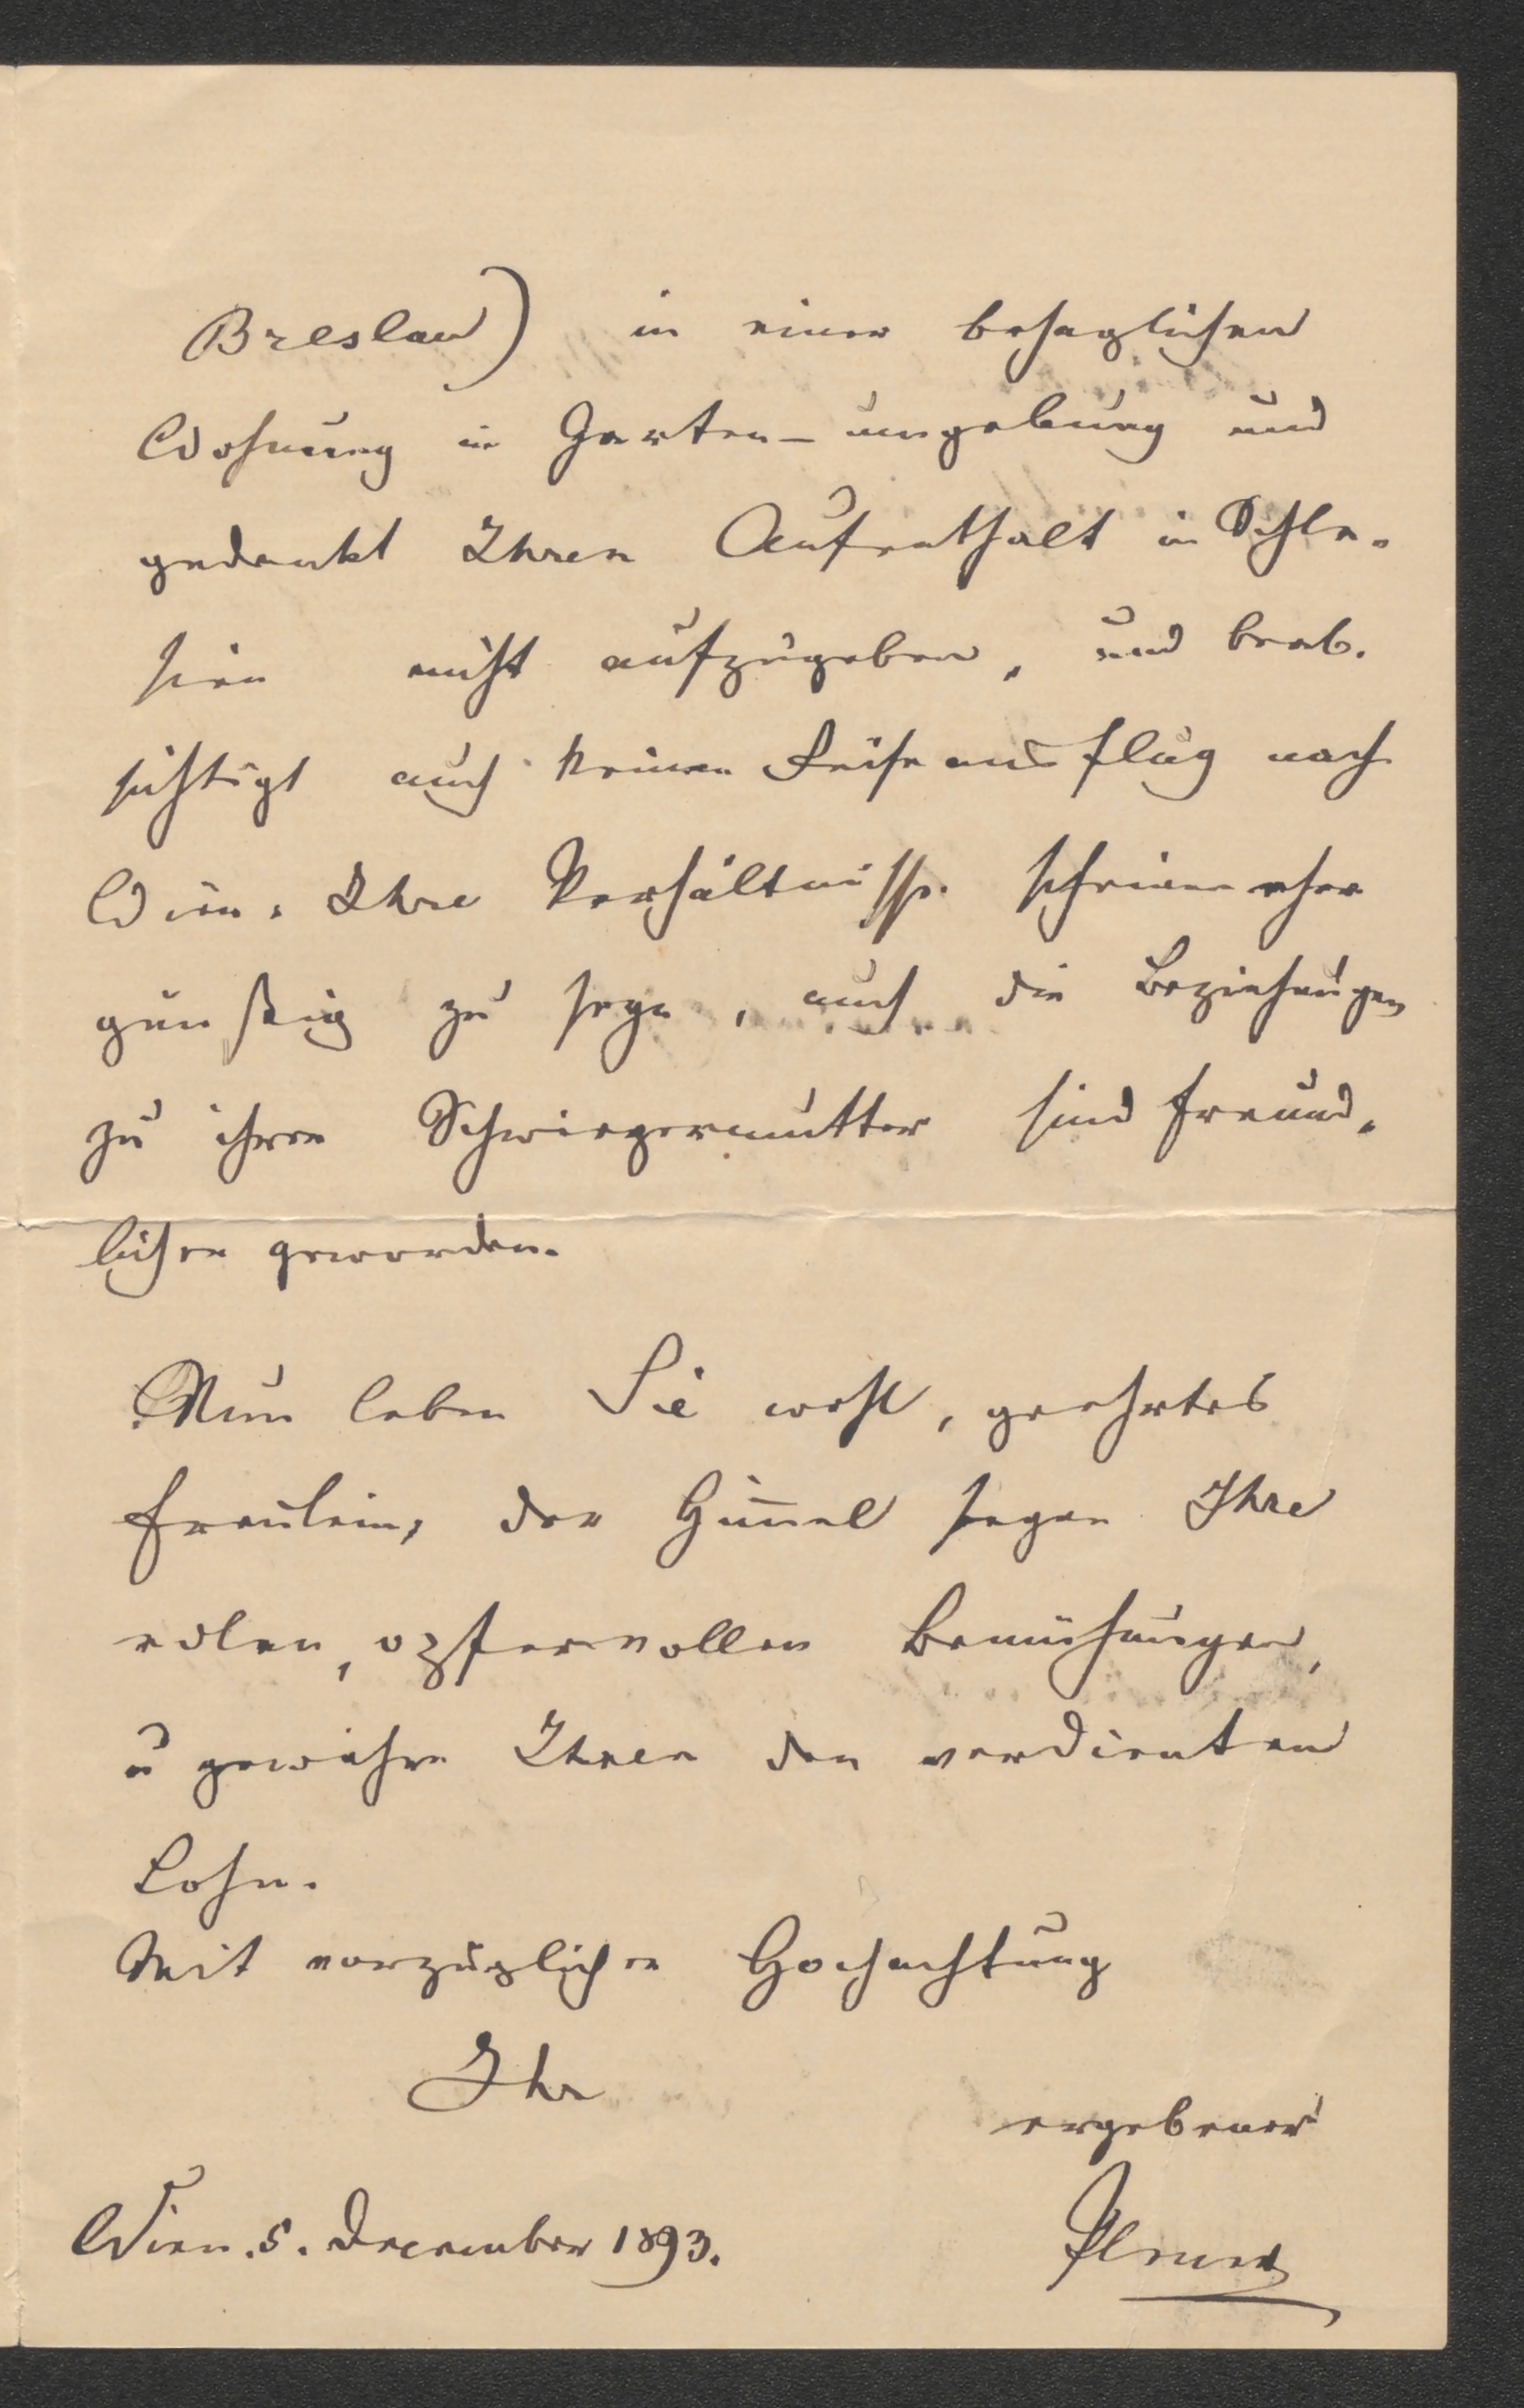 Breslau) in einer behaglichen
Wohnung in Garten-umgebung und
gedenkt Ihren Aufenthalt in Schle-
sien nicht aufzugeben, und beab-
sichtigt auch keinen Reiseausflug nach
Wien. Ihre Verhältnisse scheinen eher
günstig zu seyn, auch die Beziehungen
zu ihrer Schwiegermutter sind freund-
licher geworden.
Nun leben Sie wohl, geehrtes
Fräulein, der Him̄el segne Ihre
edlen, opfervollen Bemühungen,
u gewähre Ihnen den verdienten
Lohn.
Mit vorzüglicher Hochachtung
Ihr
ergebener
Wien. 5. December 1893.
Plener